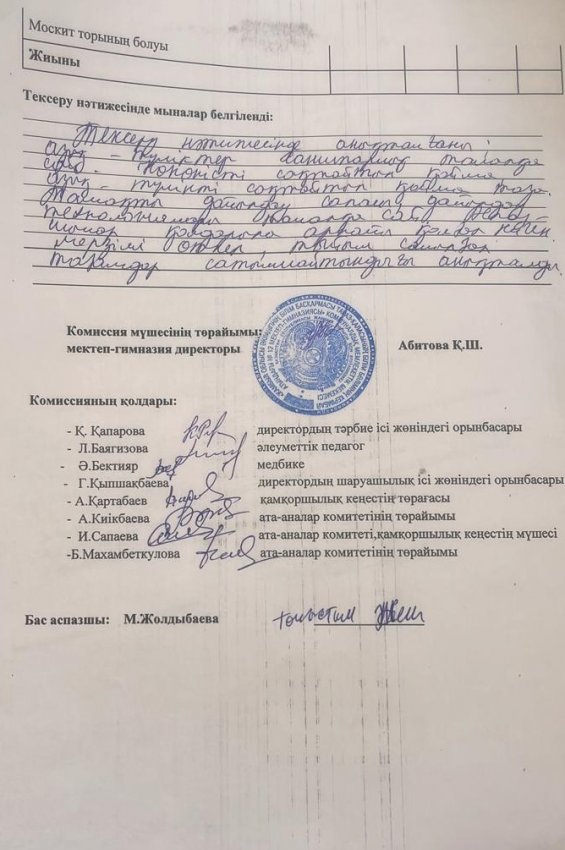 Москит торының болуы
Жиыны
Тексеру нәтижесінде мыналар белгіленді:
Тексеру нәтижесінде анықталғаны:
азық - түліктер санитарлық талапқа
сай. Көкөністі сақтайтын қойма,
азық - түлікті сақтайтын қойма таза.
Тамақты дайындау сапасы, дайындау
технологиялары талапқа сай.
қалдарына арнайы киген
Мерзімі өткен, тыйым салынған
тағамдар сатылмайтындығы анықталды.
Комиссия мүшесінің төрайымы:
мектеп-гимназия директоры Абитова Қ.Ш.
Комиссияның қолдары:
- Қ. Қапарова директордың тәрбие ісі жөніндегі орынбасары
- Л.Баягизова әлеуметтік педагог
- Ә.Бектияр медбике
- Г.Қыпшақбаева директордың шаруашылық ісі жөніндегі орынбасары
- А.Қартабаев қамқоршылық кеңестің төрағасы
- А.Киікбаева ата-аналар комитетінің төрайымы
- И.Сапаева ата-аналар комитеті,қамқоршылық кеңестің мүшесі
-Б.Махамбеткулова ата-аналар комитетінің төрайымы
Бас аспазшы: М.Жолдыбаева таныстым